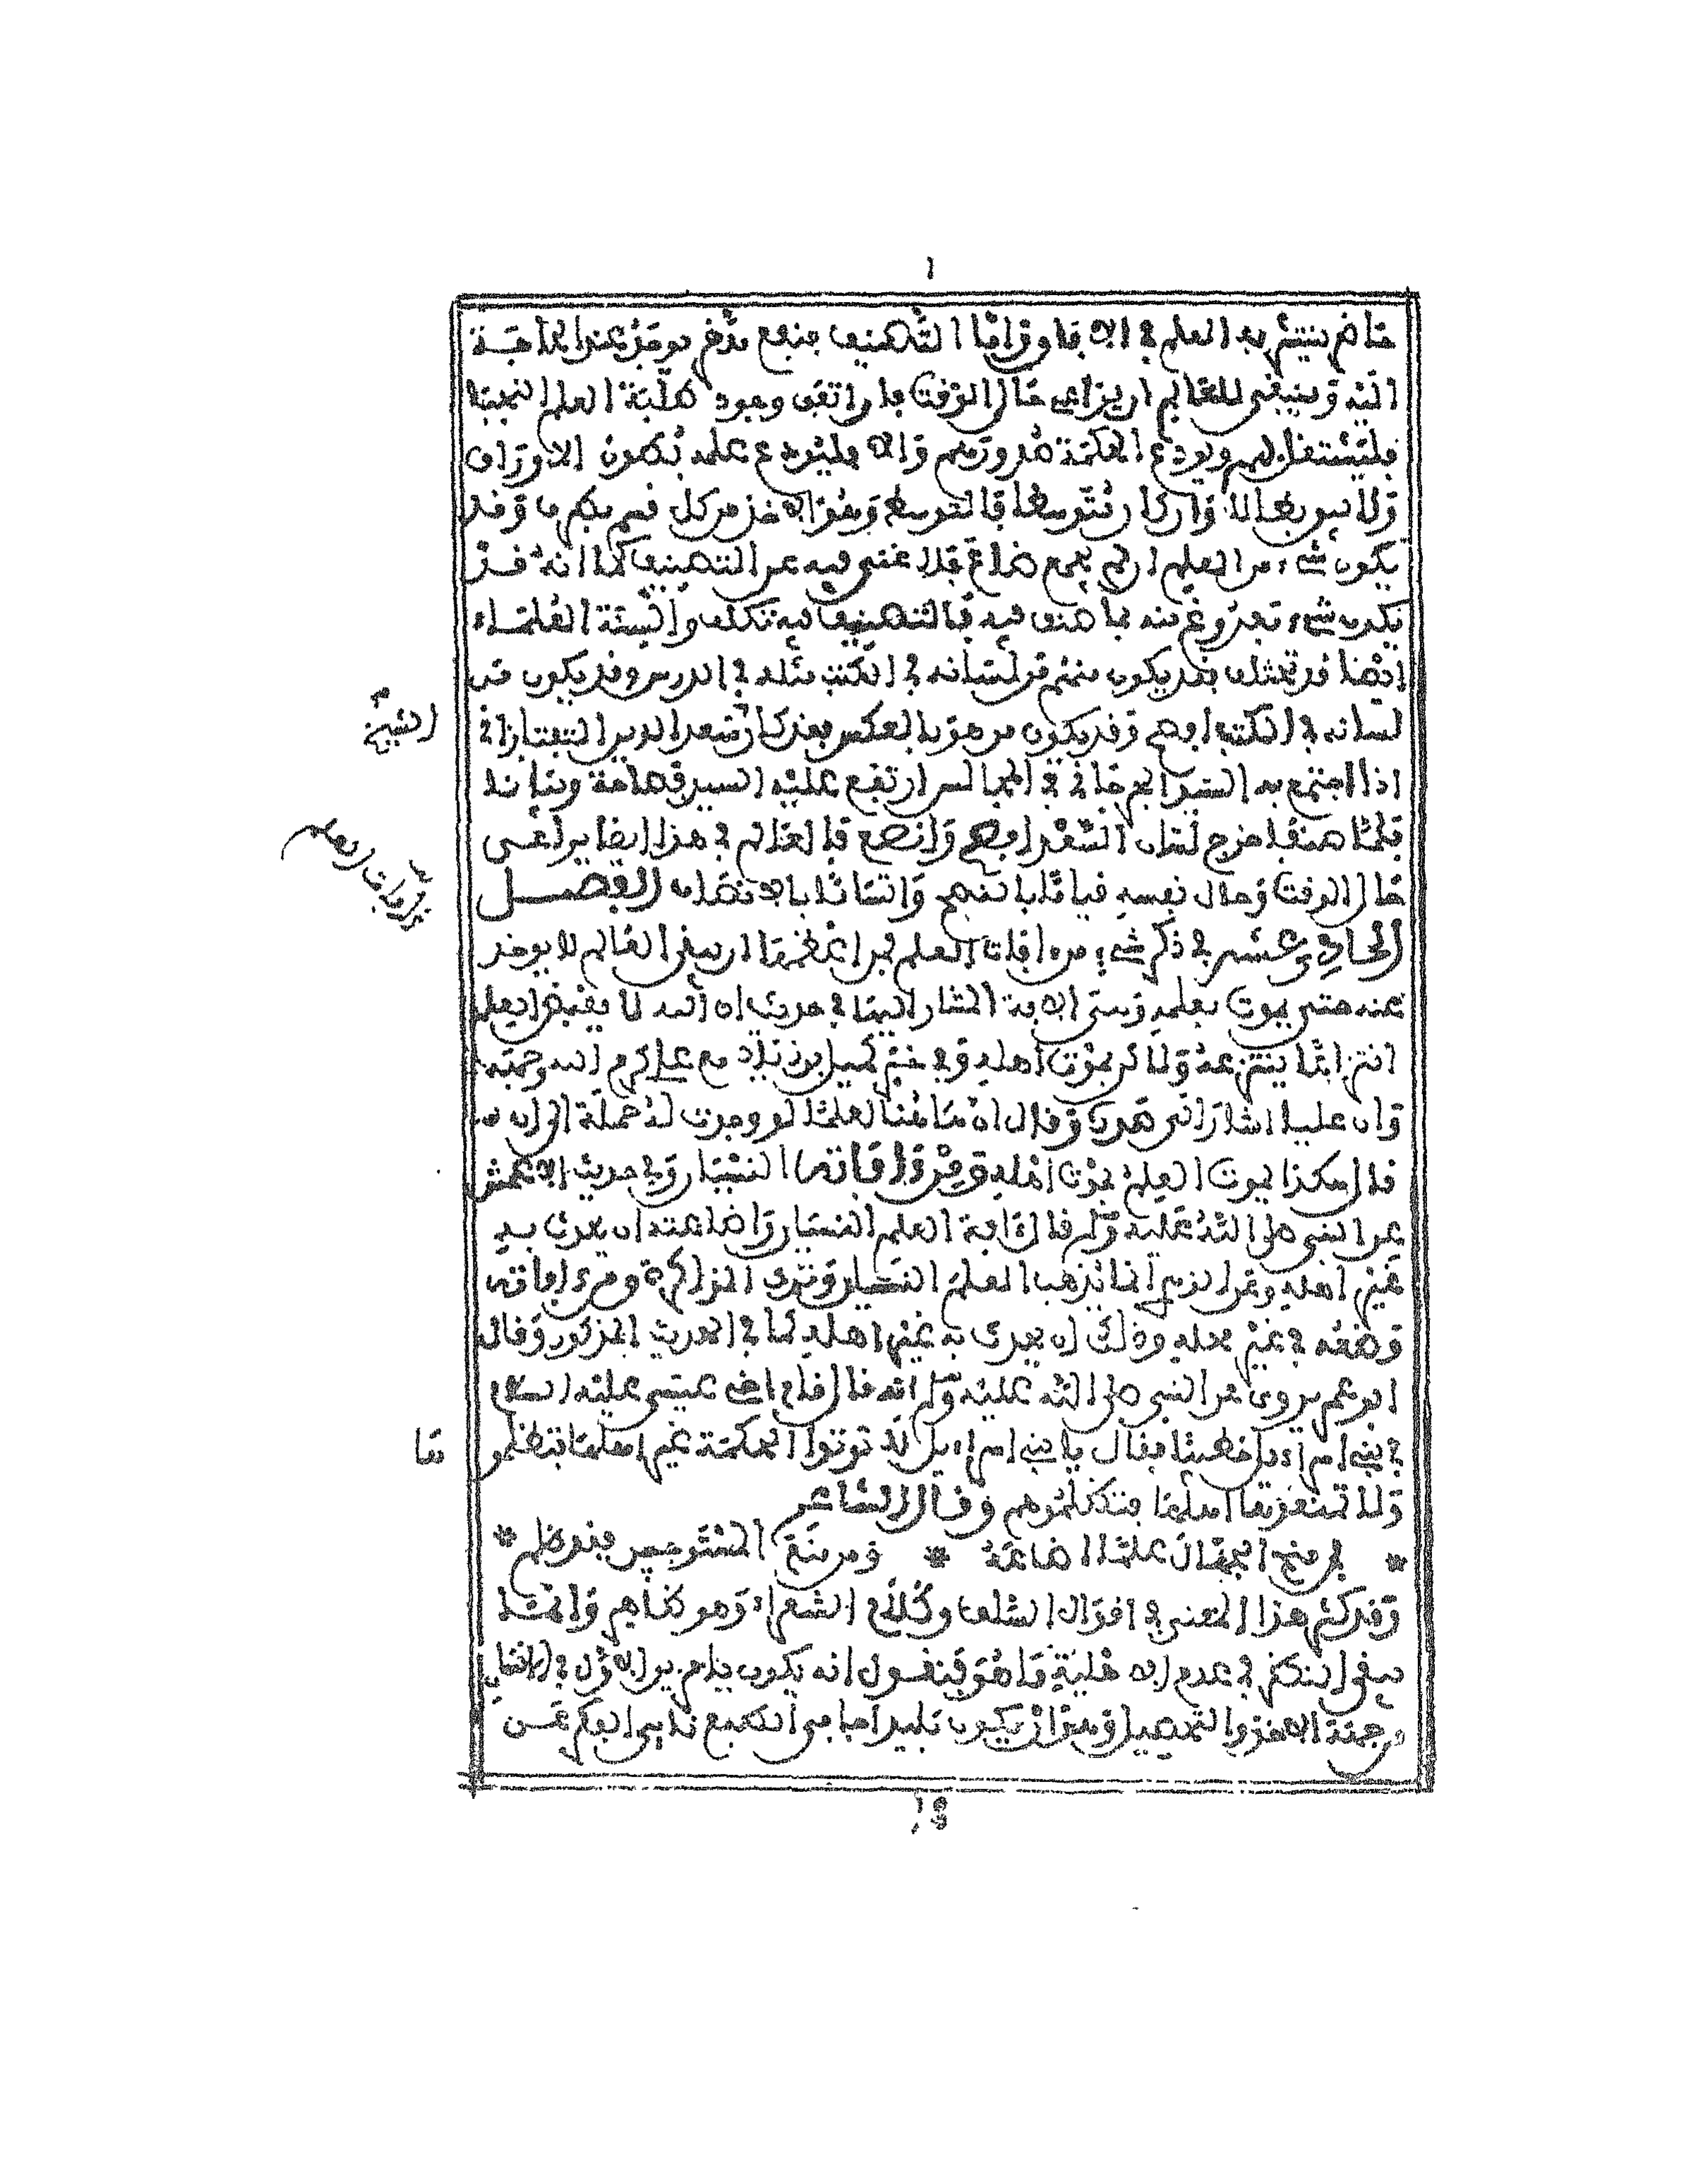 حاضر ينتشر به العلم في الآفاق وأما التصنيف فنفع مدخر يوجد عند الحاجة
إليه وينبغي للعالم أن يراعي حال الوقت فإن اتفق وجود طلبة العلم النجباء
فليشتغل بهم ويودع الحكمة صدورهم وإلا فليودع علمه بطون الأوراق
ولا سيو بحال وإن كان متوسطا فالتوسط وهو الأخذ من كل قسم بكرما وقد
يكون شيء من العلم إن لم يجمع ضاع فلا غنى فيه عن التصنيف كما أنه قد
يكون شيء تعد وغ منه بما صنف فيه فالتصنيف فيه تكلف وألسنة العلماء
أيضا قد تختلف فقد يكون منهم من لسانه في الكتب مثله في الدرس وقد يكون من
لسانه في الكتب أفصح وقد يكون من هو بالعكس فقد كان سعد الدين التفتازاني
الشيخ
إذا اجتمع به السيد الجرجاني في المجالس ارتفع عليه السيد فصاحة وبيانا
فلما صنفا خرج لسان السعد أفصح وأنصع فالعالم في هذا أيضا يراعي
حال الوقت وحال نفسه قياما بالنصح وإتيانا بالإنصاف الفصل
الحادي عشر في ذكر شيء من آفات العلم فمن أعظمها أن يبقى العالم لا يوخذ
عنه حتى يموت بعلمه وهي الآفة المشار إليها في حديث إن الله لا يقبض العلم
انتزاعا ينتزعه ولاكن بموت أهله وفي خبر كميل بن زياد مع علي كرم الله وجهه
وأن عليا أشار إلى صدره وقال إن هاهنا لعلما لو وجدت له حملة إلى أن
قال هكذا يموت العلم بموت أهله ومن آفاته النسيان وفي حديث الأعمش
عن النبي صلى الله عليه وسلم قال آفة العلم النسيان وإضاعته أن يحدث به
غير أهله وعن الزهري إنما يذهب العلم النسيان وترك المذاكرة ومن آفاته
وضعه في غير محله وذلك أن يحدث به غير أهله كما في الحديث المذكور وقال
ابو عمر يروى عن النبي صلى الله عليه وسلم أنه قال قام أخي عيسى عليه السلام
في بني إسراءيل خطيبا فقال يا بني إسراءيل لا توتوا الحكمة غير أهلها فتظلمو
ها
ولا تمنعوها أهلها فتظلموهم وقال الشاعر
* فمن منح الجهال علما أضاعه * ومن منع المستوجبين فقد ظلم *
وقد كثر هذا المعنى في أقوال السلف وكلام الشعراء وهو ظاهر وإنما
يبقى النظر في عدم الأهلية ما هو فنقول إنه يكون بأمرين الأول في
من جهة الأخذ والتحصيل وهو أن يكون بليدا جافي الطبع نابي الفكر عن